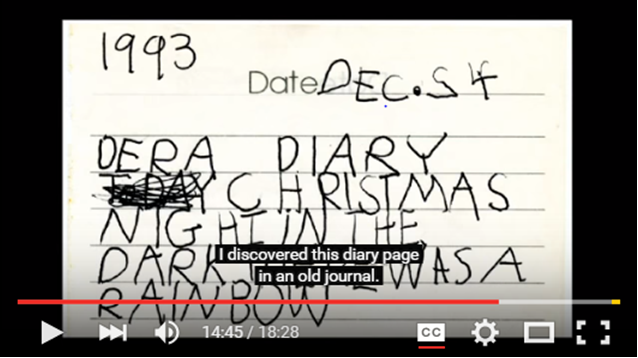 1993
Date DEC.S4
DERA DIARY
CHRISTMAS
NIGHT IN THE
DARK WAS A
RAINBOW
I discovered this diary page
in an old journal.
14:45 / 18:28
CC